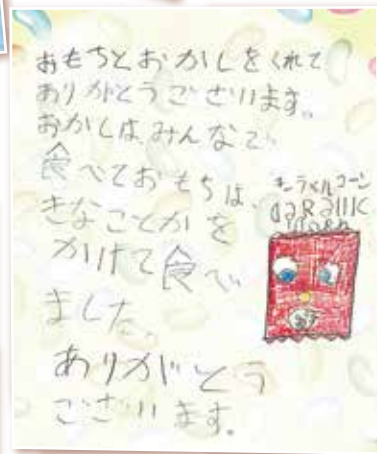 おもちとおかしをくれて
ありがとうございます。
おかしはみんなで
食べておもちは、
きなことかを
かけて食べ
ました。
ありがとう
ございます。
キャラメルコーン